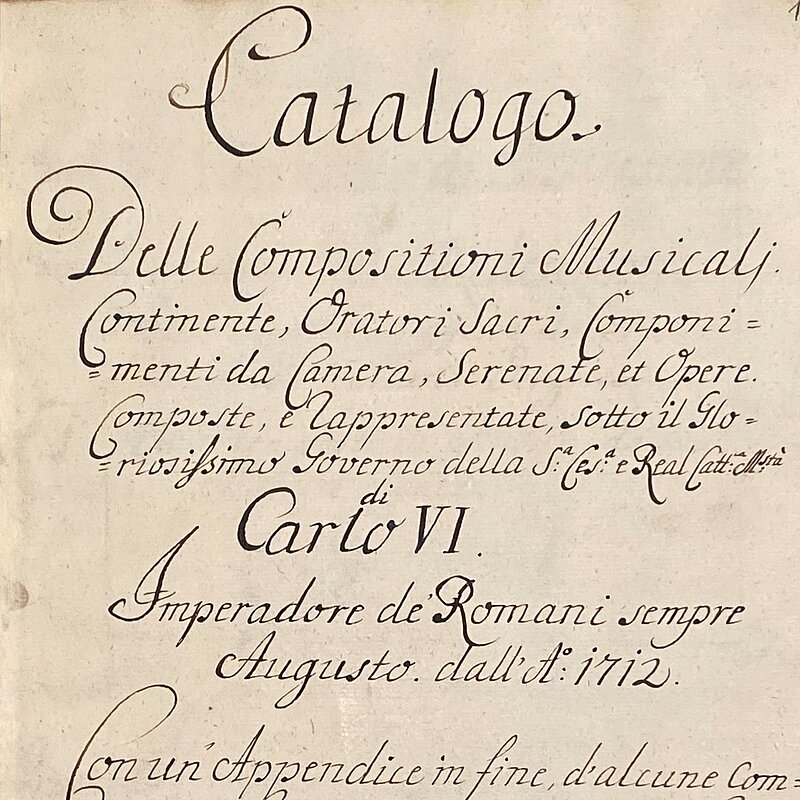 1
Catalogo.
Delle Compositioni Musicalj.
Continente, Oratori Sacri, Componi=
=menti da Camera, Serenate, et Opere.
Composte, e Rappresentate, sotto il Glo=
=riosissimo Governo della S.ª Ces.ª e Real Catt.ª M.stà
di
Carlo VI.
Imperadore de' Romani sempre
Augusto. dall' A.º 1712.
Con un' Appendice in fine, d'alcune Com=